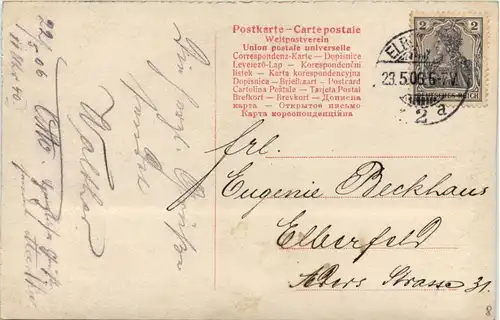 Postkarte - Carte postale
Weltpostverein
Union postale universelle
Correspondenz-Karte - Dopisnice
Levelező-Lap - Korespondenční
listek - Karta korespondencyjna
Dopisnica - Briefkaart - Postcard
Cartolina Postale - Tarjeta Postal
Brefkort - Brevkort - Дописна
карта - Открытое письмо
Карта кореспонденціина
2 2
DEUTSCHES REICH
23.5.06.6-7V.
2 a
Frl.
Eugenie Beckhaus
Elberfeld
Aders Strasse 31.
22/5 06
Herzl. Grüße
Walther
Otto
8